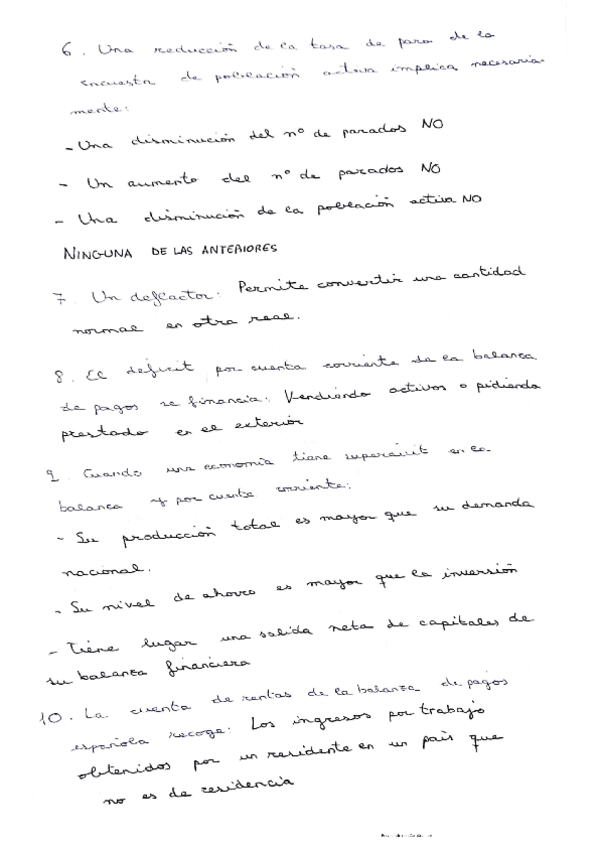 6. Una reducción de la tasa de paro de la
encuesta de población activa implica necesaria-
mente:
- Una disminución del nº de parados NO
- Un aumento del nº de parados NO
- Una disminución de la población activa NO
NINGUNA DE LAS ANTERIORES
7. Un deflactor: Permite convertir una cantidad
normal en otra real.
8. El déficit por cuenta corriente de la balanza
de pagos se financia: Vendiendo activos o pidiendo
prestado en el exterior
9. Cuando una economía tiene superávit en la
balanza y por cuenta corriente:
- Su producción total es mayor que su demanda
nacional.
- Su nivel de ahorro es mayor que la inversión
- Tiene lugar una salida neta de capitales de
su balanza financiera
10. La cuenta de rentas de la balanza de pagos
española recoge: Los ingresos por trabajo
obtenidos por un residente en un país que
no es de residencia